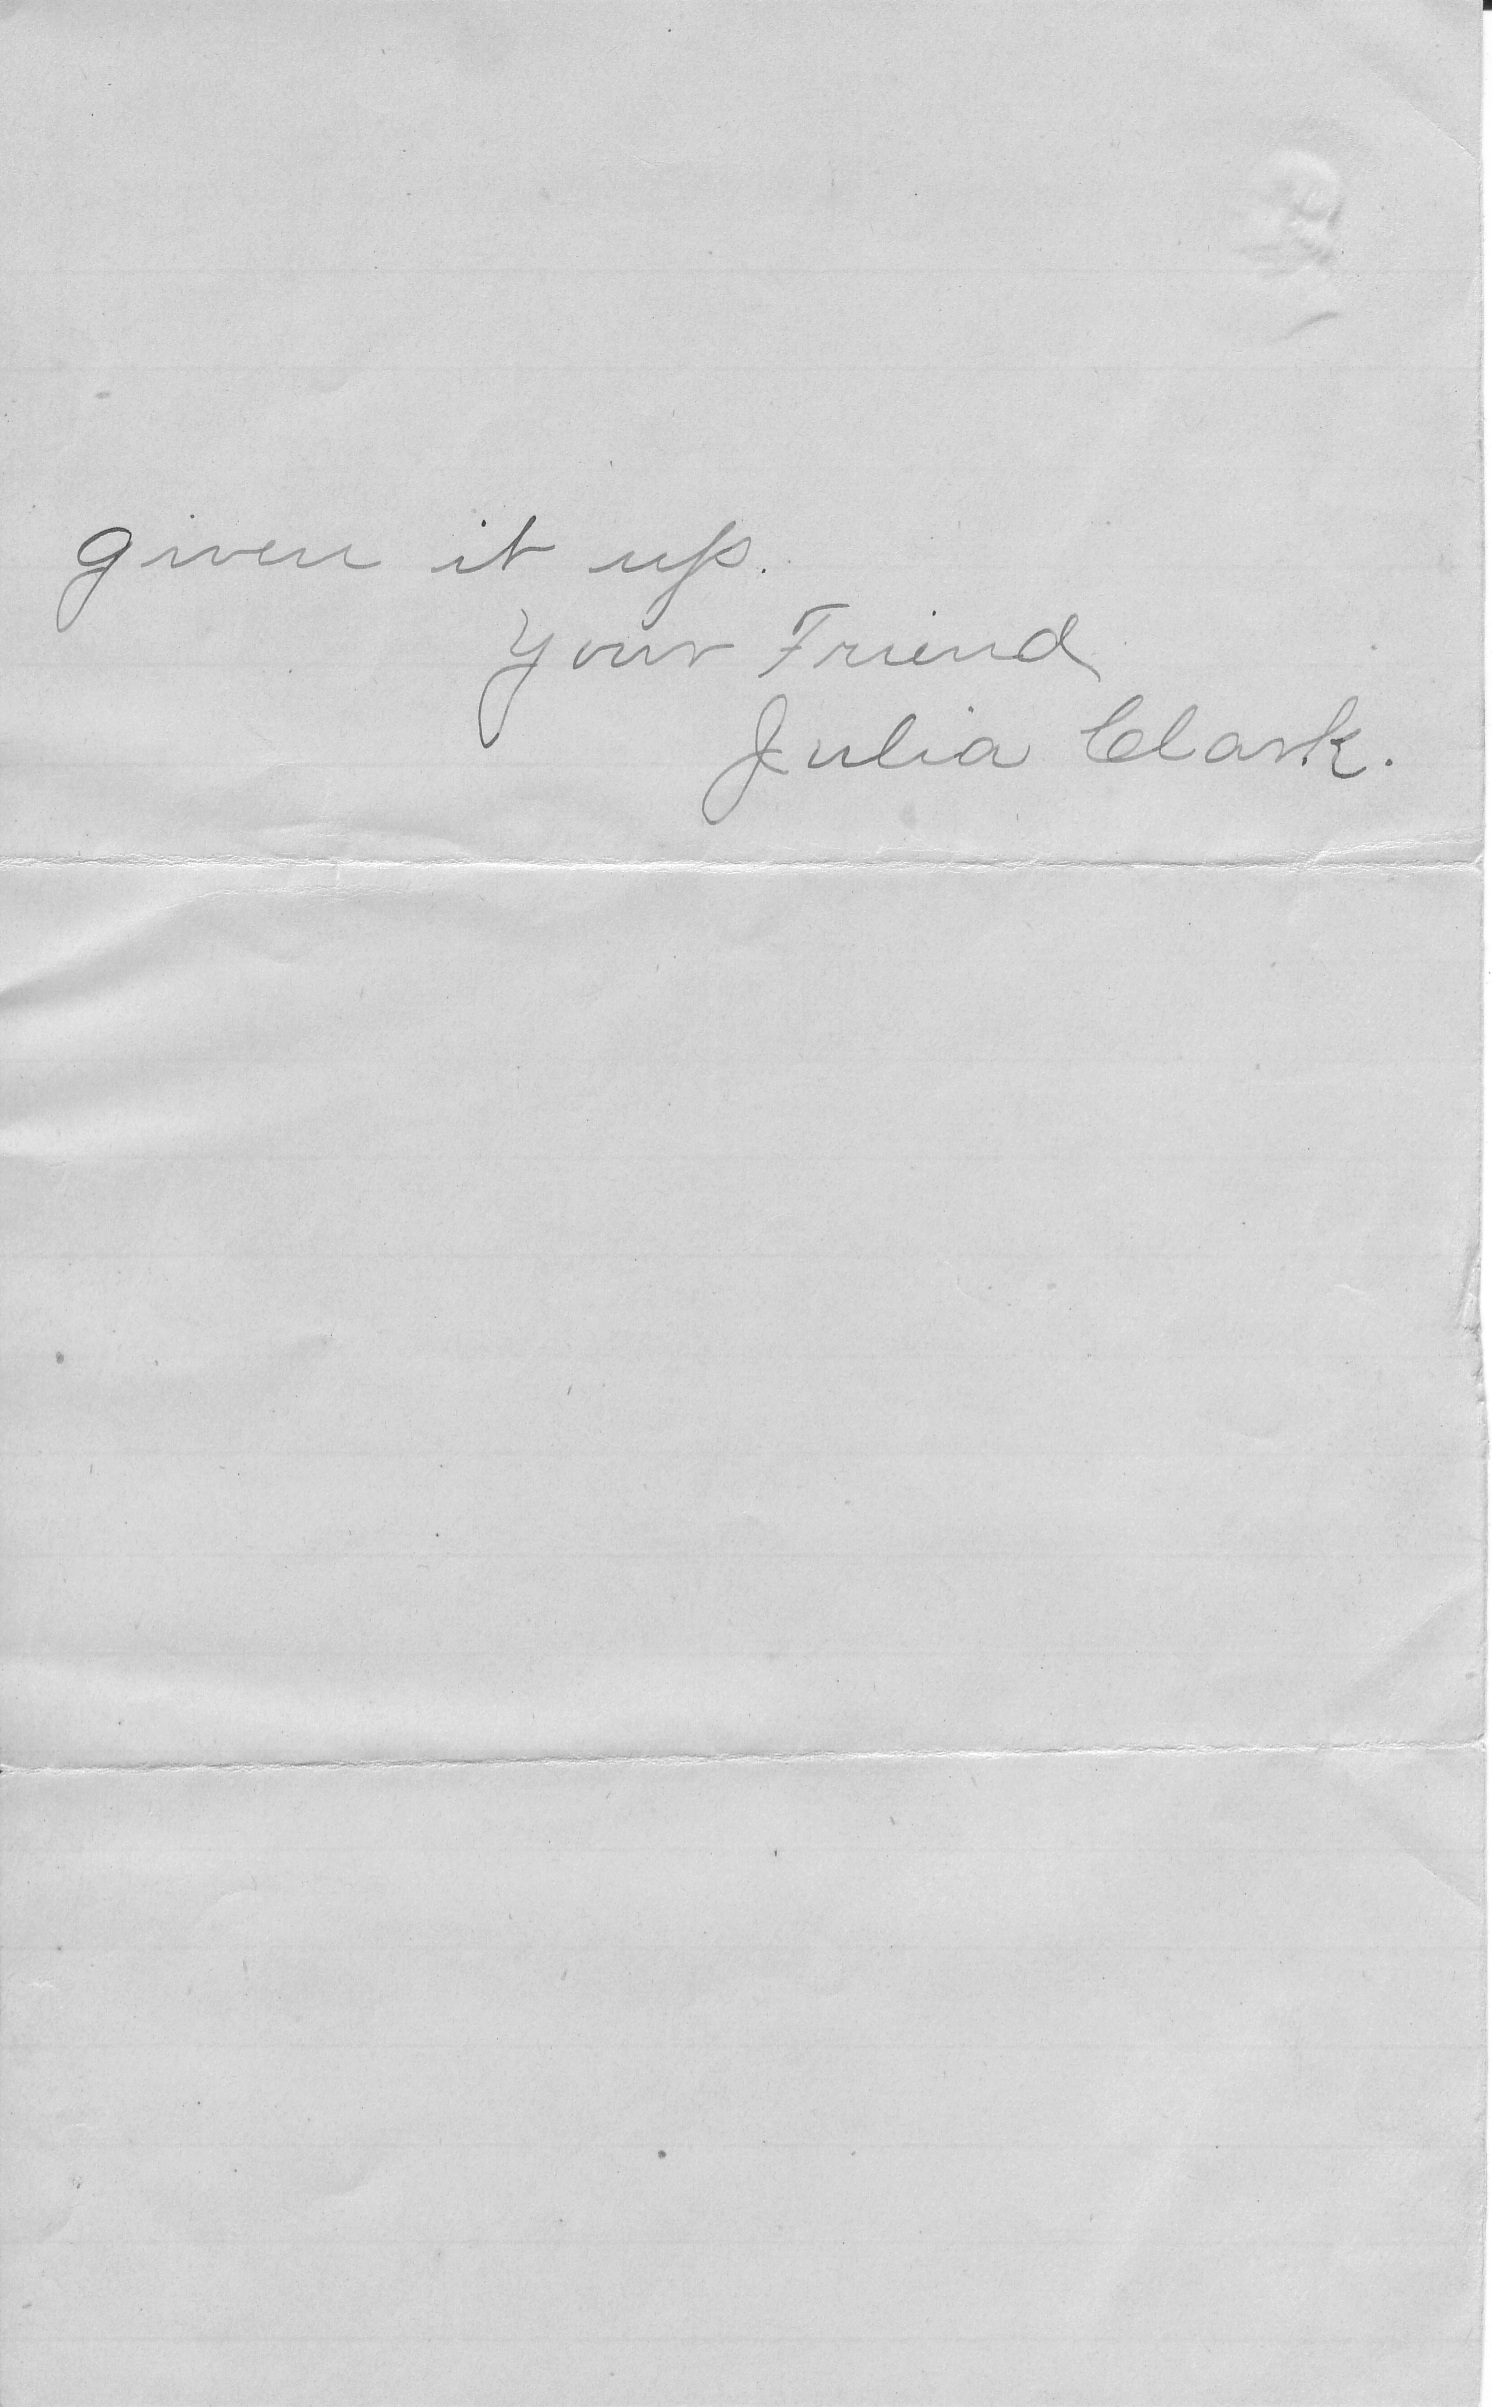 given it up.
Your Friend
Julia Clark.